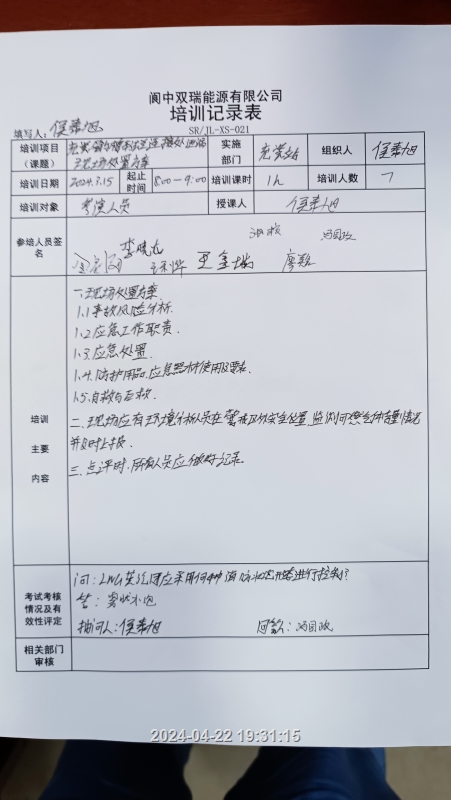 阆中双瑞能源有限公司
培训记录表
SR/JL-XS-021
填写人：侯荣旭
培训项目（课题）
现场处置方案
实施部门 充装站 组织人 侯荣旭
培训日期 2024.3.15 起止时间 8:00-9:00 培训课时 1h 培训人数 7
培训对象 参演人员 授课人 侯荣旭
参培人员签名
李晓龙
冯国政
培训主要内容
一.现场处置方案.
1.1 事故风险分析.
1.2 应急工作职责.
1.3. 应急处置.
1.4. 防护用品、应急器材使用及要求.
1.5. 自救与互救.
二. 现场应有环境分析人员在警戒区外安全位置,监测可燃气体含量情况
并及时上报.
三. 点评时,所有人员应做好记录.
考试考核情况及有效性评定
问：LNG英泄漏应采用何种消防水炮形态进行控制?
答：雾状水炮
提问人：侯荣旭 回答：冯国政
相关部门审核
2024-04-22 19:31:15